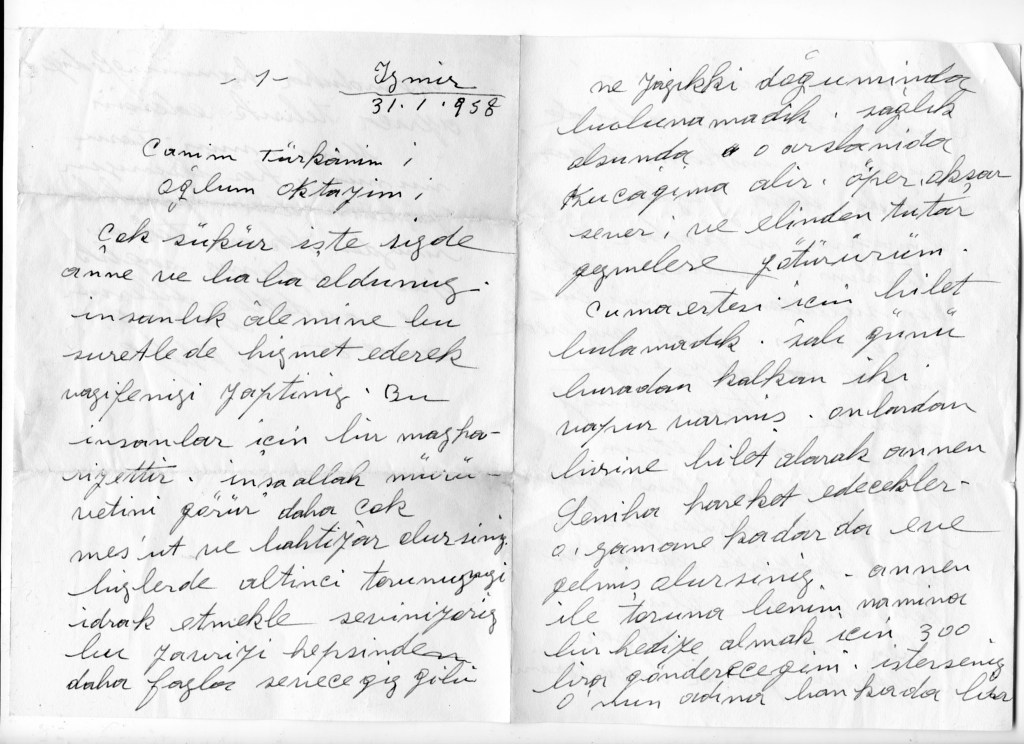 - 1 -
Izmir
31.1.958
Canım Türkânım ;
Oğlum Oktayim ;
Çok şükür işte sizde
anne ve baba oldunuz.
insanlık âlemine bu
suretlede hizmet ederek
vazifenizi yaptiniz. Bu
insanlar için bir mazha-
riyettir. inşaallah mürü-
vetini görür daha çok
mes'ut ve bahtiyar olursiniz
bizlerde altinci torunuzayi
idrak etmekle seviniyoriz
bu yavriyi hepsinden
daha fazla seveceğiz gibi
ne yazıkki doğuminda
bulunamadık. sağlık
olsunda o arslanida
Kucağima alir. öper, okşar
sever; ve elinden tutar
gezmelere götürürüm.
Cumaertesi için bilet
bulamadık. salı günü
buradan kalkan iki
vapur varmiş. onlardan
birine bilet alarak annen
Seniha hareket edecekler-
o zamane kadar da eve
gelmiş olursiniz. annen
ile toruna benim namina
bir hediye almak için 300
lira göndereceğim. isterseniz
O'nun adina bankada bir